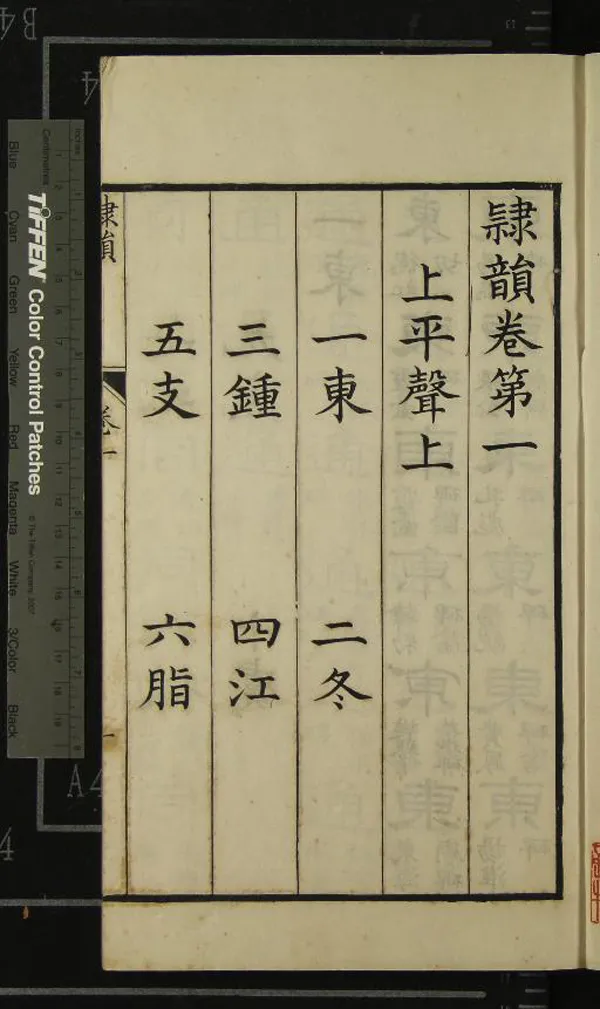 隷韻卷第一
上平聲上
一東 二冬
三鍾 四江
五支 六脂
隷韻 卷一 一
TIFFEN Color Control Patches
© The Tiffen Company, 2007
Centimetres
Inches
Blue Cyan Green Yellow Red Magenta White 3/Color Black
B4
A4